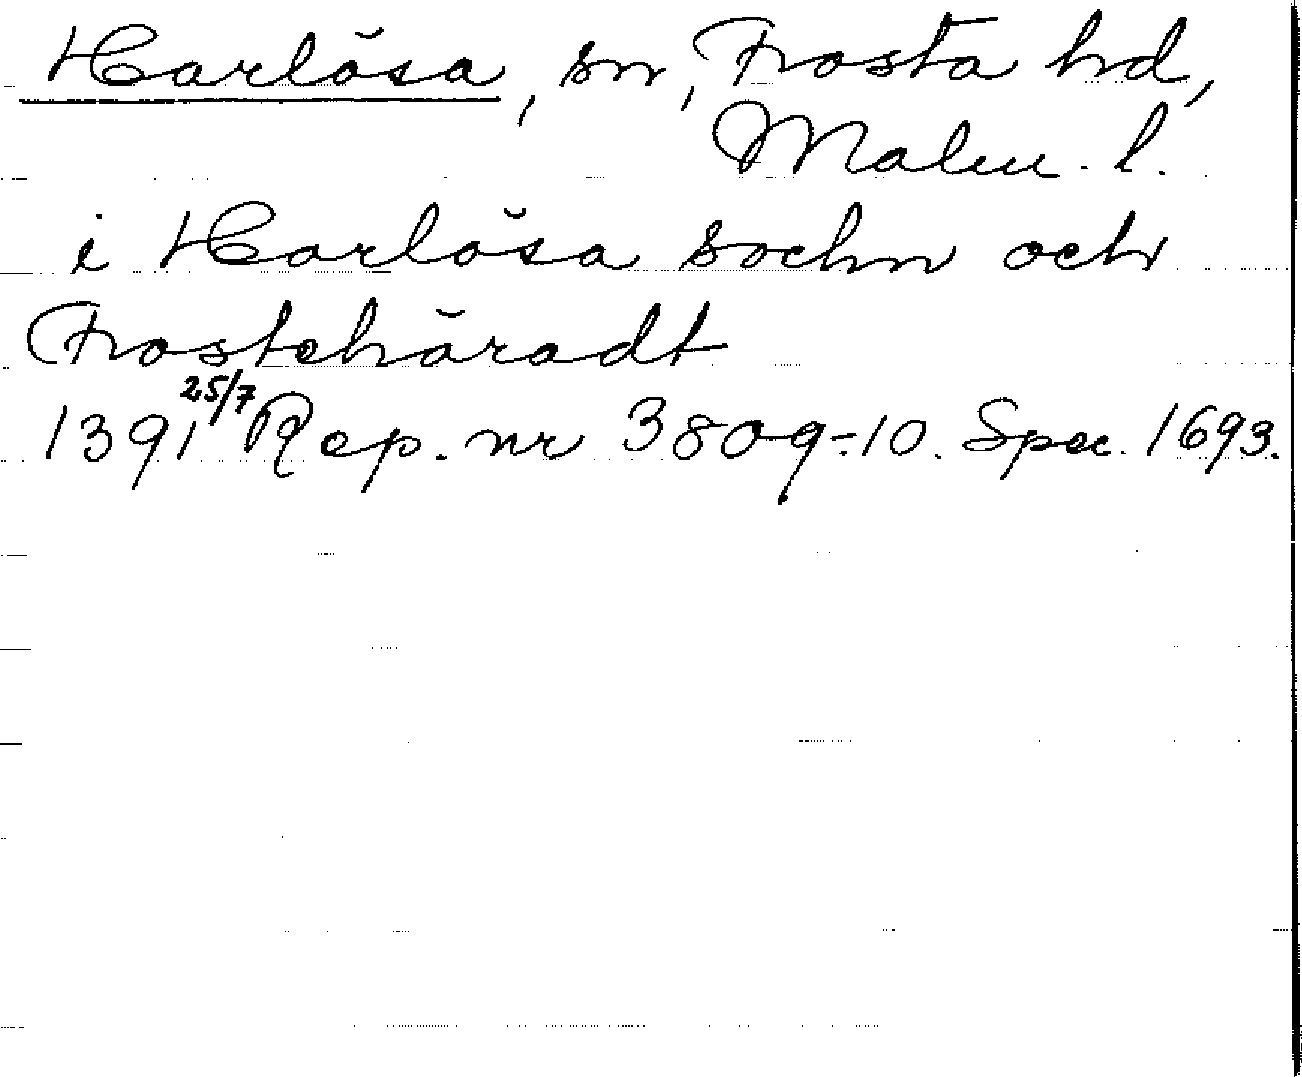 Harlösa, sn, Frosta hd,
Malm. l.
i Harlösa sochn och
Frostehäradt
1391 25/7 Rep. nr 3809-10. Spec. 1693.